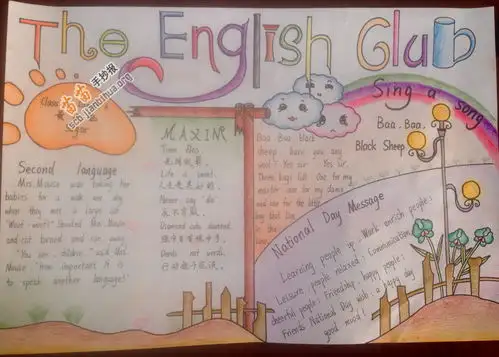 The English Club
手抄报
scb.jianbihua.org
Class
Sing a song
Baa, Baa,
Black Sheep
Second language
Mrs. Mouse was taking her
babies for a walk one day
when they met a large cat.
"Woof! woof!" shouted Mrs. Mouse
and cat turned and ran away.
"You see, children," said Mrs.
Mouse "how important it is
to speak another language!"
MAXIM
Time flies
光阴似箭.
Life is sweet.
人生是美好的.
Never say die
永不言败.
Diamond cuts diamond.
强中自有强中手.
Deeds not words.
行动胜于言谈.
Baa Baa black
sheep have you any
wool? Yes sir, Yes sir
Three bags full One for my
master one for my dame
and one for the little
boy that lives
in the
lane
National Day Message
Learning people up; Work enrich people;
Leisure people relaxed; Communication
cheerful people; Friendship, happy people;
Friends National Day with a happy day
good mood!